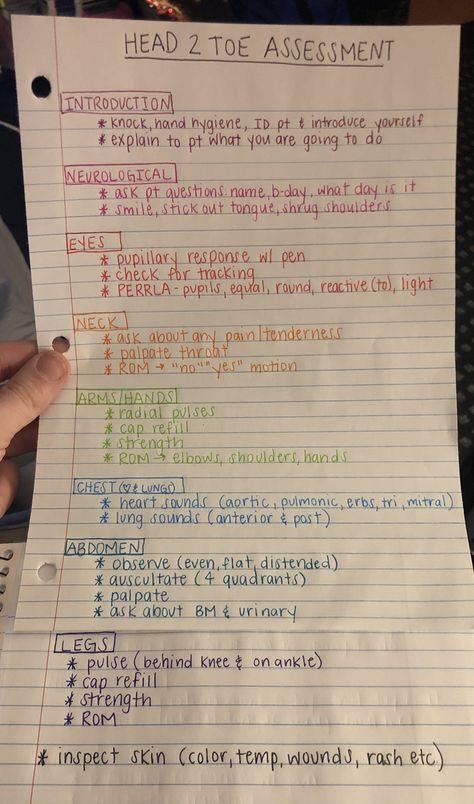 HEAD 2 TOE ASSESSMENT
INTRODUCTION
* knock, hand hygiene, ID pt & introduce yourself
* explain to pt what you are going to do
NEUROLOGICAL
* ask pt questions: name, b-day, what day is it
* smile, stick out tongue, shrug shoulders
EYES
* pupillary response w/ pen
* check for tracking
* PERRLA - pupils, equal, round, reactive (to), light
NECK
* ask about any pain/tenderness
* palpate throat
* ROM → "no" "yes" motion
ARMS/HANDS
* radial pulses
* cap refill
* strength
* ROM → elbows, shoulders, hands
CHEST (♡ & LUNGS)
* heart sounds (aortic, pulmonic, erbs, tri, mitral)
* lung sounds (anterior & post)
ABDOMEN
* observe (even, flat, distended)
* auscultate (4 quadrants)
* palpate
* ask about BM & urinary
LEGS
* pulse (behind knee & on ankle)
* cap refill
* strength
* ROM
* inspect skin (color, temp, wounds, rash etc)